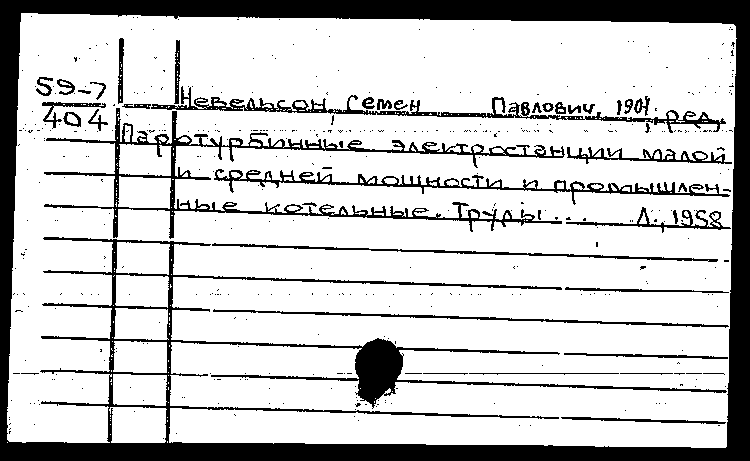 59-7
404
Невельсон, Семен Павлович, 1904, ред.
Паротурбинные электростанции малой
и средней мощности и промышлен-
ные котельные. Труды... Л., 1958